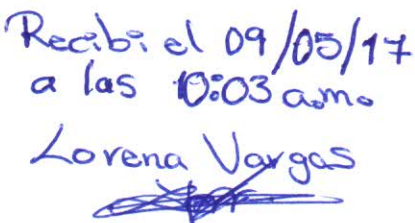 Recibi el 09/05/17
a las 10:03 a.m.
Lorena Vargas